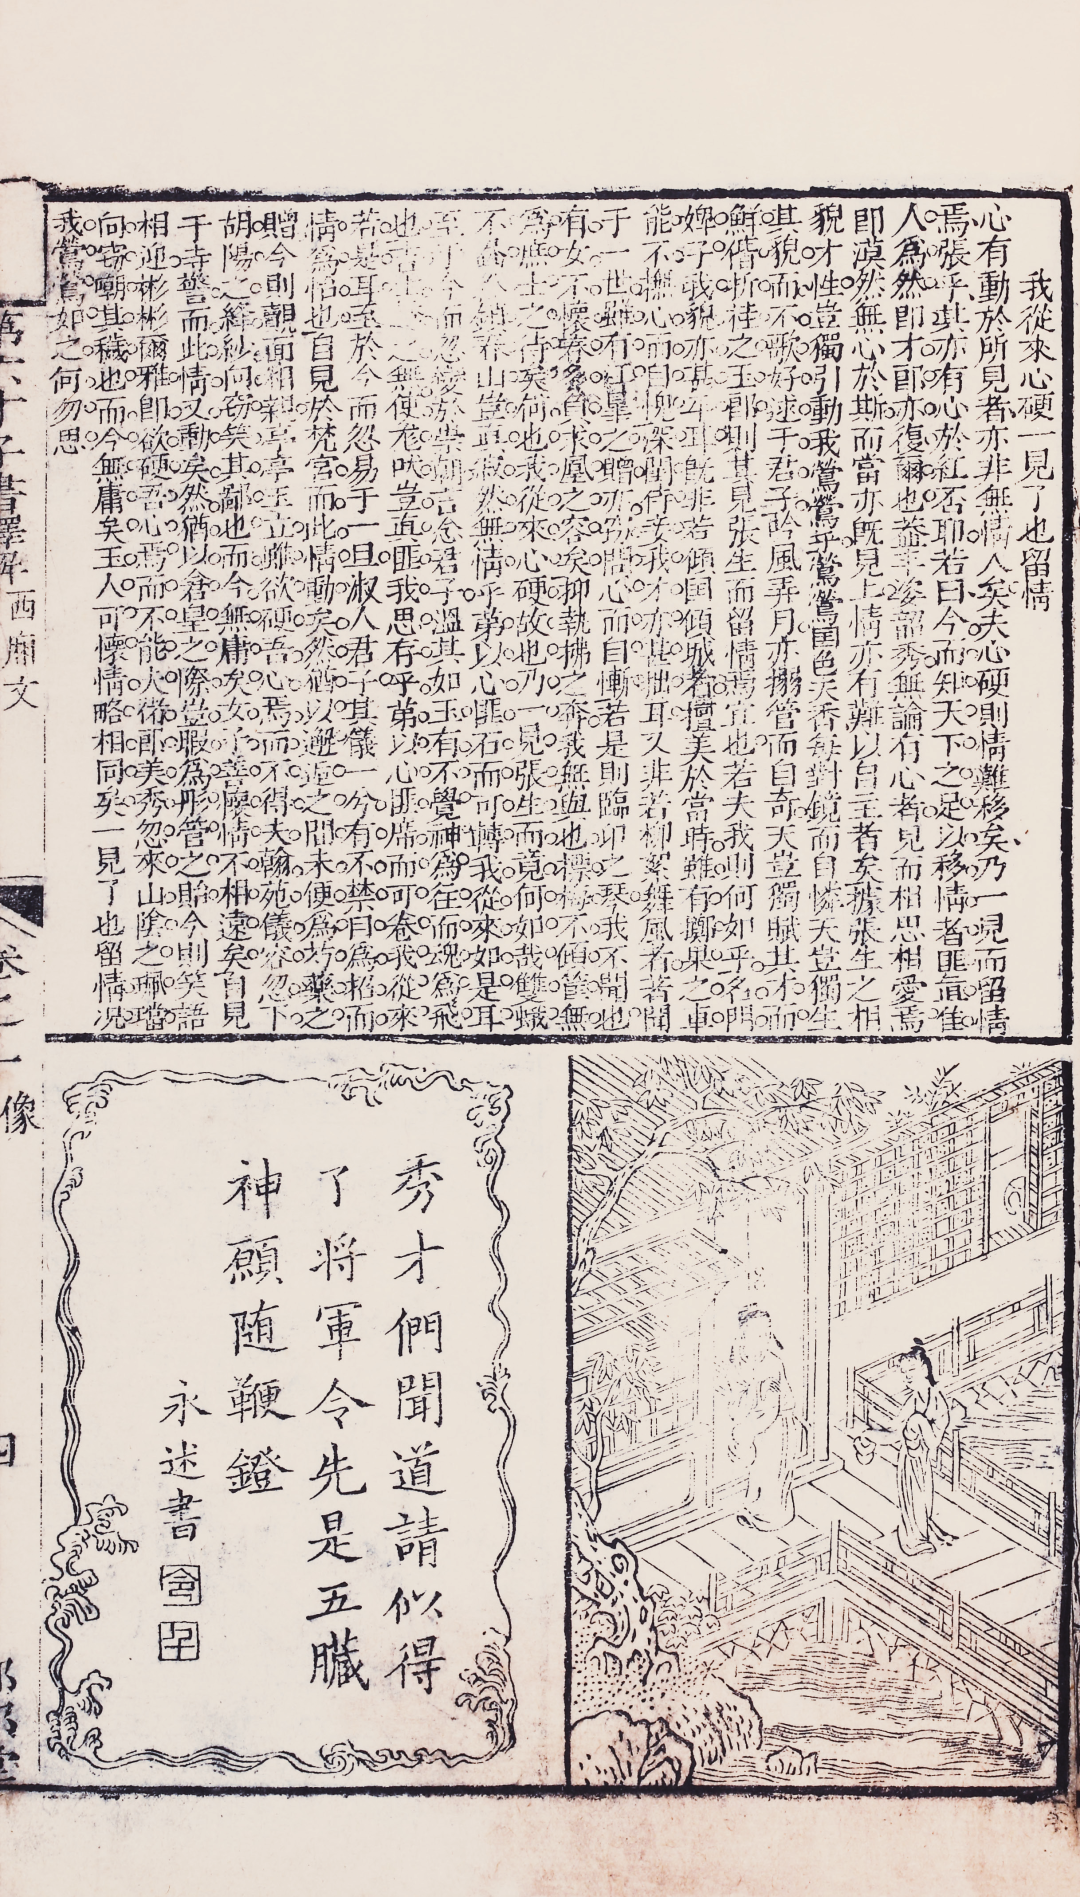 我從來心硬一見了也留情
心有動於所見者亦非無情人矣夫心硬則情難移矣乃一見而留情
焉張乎其亦有心於紅否耶若曰今而知天下之足以移情者匪直佳
人為然即才郎亦復爾也蓋丰姿韶秀無論有心者見而相思相愛焉
即漠然無心於斯而當亦既見上情亦有難以自主者矣據張生之相
貌才性豈獨引動我鶯鶯乎鶯鶯国色天香每對鏡而自憐天豈獨生
其貌而不歌好逑于君子吟風弄月亦搦管而自奇天豈獨賦其才而
鮮偕折桂之玉郎則其見張生而留情焉宜也若夫我則何如乎名門
婢子我貌亦甚平耳既非若傾国傾城者擅美於當時雖有擲果之車
能不撫心而自愧深閨侍妾我才亦甚拙耳又非若柳絮舞風者著聞
于一世雖有紅葉之贈亦捫心而自慚若是則臨卭之琴我不聞也
有女不懷春負求凰之容矣抑執拂之奔我無與也標梅不傾筐無
為庶士之待矣何也我從來心硬故也乃一見張生而竟何如哉雙蛾
不畫鎖春山豈直漠然無情乎第以心匪石而可轉我從來如是耳
至于今而忽變於學朝言念君子溫其如玉有不覺神為往而魂為飛
也無使尨吠豈直匪我思存乎第以心匪席而可卷我從來
若是耳至於今而忽易于一旦淑人君子其儀一兮有不禁目為招而
情為怡也自見於梵宮而此情動矣然猶以邂逅之間未便為芍藥之
贈今則覿面相親亭亭玉立雖欲硬吾心焉而不得夫翰苑儀容忽下
胡陽之絳紗向竊矣其鄙也而今無庸矣女子善懷情不相遠矣自見
于寺警而此情又動矣然猶以倉皇之際豈暇為彤管之貽今則笑語
相迎彬彬爾雅即欲硬吾心焉而不能夫衛郎美秀忽來山陰之珮璫
向竊嘲其穢也而今無庸矣王人可懷情略相同矣一見了也留情况
我鶯鶯如之何勿思
第六才子書釋解
西廂文
卷之一
像
四
秀才們聞道請似得
了將軍令先是五臟
神願随鞭鐙
永述書